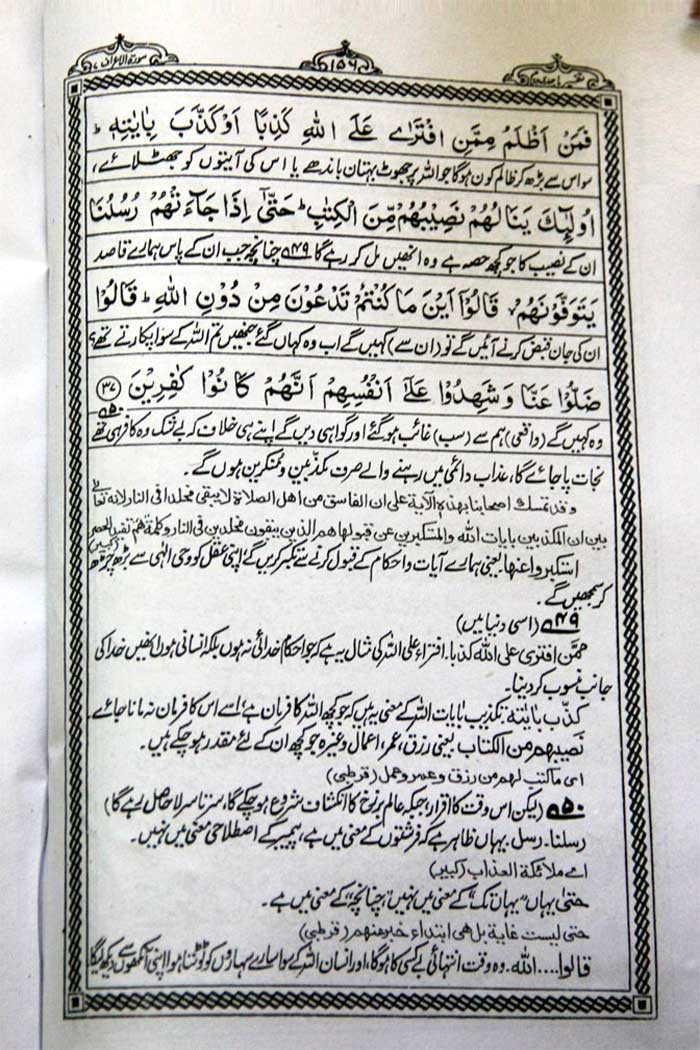 سورۃ الاعراف ۷ ۱۵۶ تفسیر ماجدی
فَمَنْ اَظْلَمُ مِمَّنِ افْتَرٰى عَلَى اللّٰهِ كَذِبًا اَوْ كَذَّبَ بِاٰيٰتِهٖ ؕ
سو اس سے بڑھ کر ظالم کون ہوگا جو اللہ پر جھوٹ بہتان باندھے یا اس کی آیتوں کو جھٹلائے،
اُولٰٓئِكَ يَنَالُهُمْ نَصِيْبُهُمْ مِّنَ الْكِتٰبِ ؕ حَتّٰۤى اِذَا جَآءَتْهُمْ رُسُلُنَا
ان کے نصیب کا جو کچھ حصہ ہے وہ انھیں مل کر رہے گا ۴۹ چنانچہ جب ان کے پاس ہمارے قاصد
يَتَوَفَّوْنَهُمْ ۙ قَالُوْۤا اَيْنَ مَا كُنْتُمْ تَدْعُوْنَ مِنْ دُوْنِ اللّٰهِ ؕ قَالُوْا
ان کی جان قبض کرنے آئیں گے تو (ان سے) کہیں گے اب وہ کہاں گئے جنھیں تم اللہ کے سوا پکارتے تھے؟
ضَلُّوْا عَنَّا وَ شَهِدُوْا عَلٰۤى اَنْفُسِهِمْ اَنَّهُمْ كَانُوْا كٰفِرِيْنَ ۳۷
وہ کہیں گے (واقعی) ہم سے (سب) غائب ہوگئے اور گواہی دیں گے اپنے ہی خلاف کہ بے شک وہ کافر ہی تھے ۵۰
نجات پا جائے گا، عذاب دائمی میں رہنے والے صرف مکذبین و منکرین ہوں گے۔
وقد تمسك اصحابنا بهذه الآية على ان الفاسق من اهل الصلاة لا يبقى مخلدا فى النار لانه تعالى
بين ان المكذبين بايات الله والمستكبرين عن قبولها هم الذين يبقون مخلدين فى النار وكلمة هم تفيد الحصر (كبير)
استکبروا عنھا یعنی ہمارے آیات و احکام کے قبول کرنے سے تکبر کریں گے؛ اپنی عقل کو وحی الٰہی سے بڑھ چڑھ
کر سمجھیں گے۔
۴۹ (اسی دنیا میں)
ممن افتری علی اللہ کذبا۔ افتراء علی اللہ کی مثال یہ ہے کہ جو احکام خدائی نہ ہوں بلکہ انسانی ہوں انھیں خدا کی
جانب منسوب کردینا۔
کذب بایتہ۔ تکذیب بایات اللہ کے معنی یہ ہیں کہ جو کچھ اللہ کا فرمان ہے؛ اسے اس کا فرمان نہ مانا جائے۔
نصیبھم من الکتاب۔ یعنی رزق، عمر، اعمال وغیرہ جو کچھ ان کے لئے مقدر ہوچکے ہیں۔
اى ما كتب لهم من رزق وعمر وعمل (قرطبى)
۵۰ (لیکن اس وقت کا اقرار، جبکہ عالم برزخ کا انکشاف شروع ہو چکے گا، سرتاسر لاحاصل رہے گا)
رسلنا۔ رسل یہاں ظاہر ہے کہ فرشتوں کے معنی میں ہے، پیمبر کے اصطلاحی معنی میں نہیں۔
اے ملائكة العذاب (كبير)
حتٰی یہاں "یہاں تک" کے معنی میں نہیں "چنانچہ" کے معنی میں ہے۔
حتى ليست غاية بل هى ابتداء خبر عنهم (قرطبى)
قالوا.... اللہ۔ وہ وقت انتہائی بے کسی کا ہوگا، اور انسان اللہ کے سوا سارے سہاروں کو ٹوٹتا ہوا اپنی آنکھوں سے دیکھ لیگا